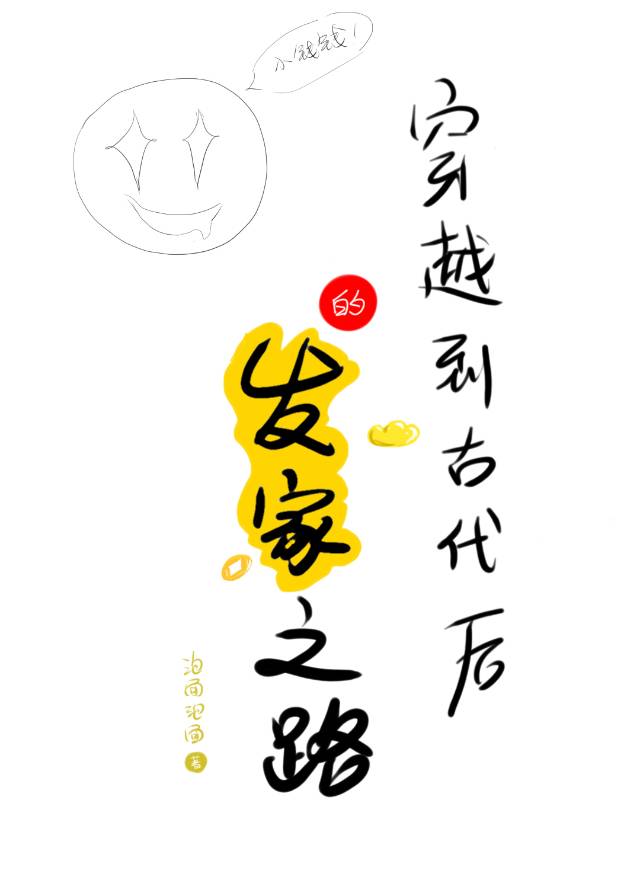 小钱钱!
穿越到古代后
的
发家之路
泊面泡面
著